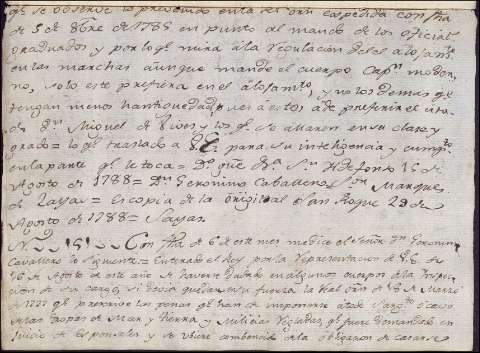 qe. se observe lo prevenido en la Rl. orn. expedida con fha
de 5 de 8bre de 1785 en punto al mando de los oficial
graduados y por lo qe. mira a la regulacion de los alojamtos
en las marchas aunque mande el cuerpo Capn. moder,
no, solo este prefiera en el alojamto, y no los demas qe
tengan menos hantiguedad, pues a estos a de preferir el cita,
do Dn. Miguel de Vives y los qe. se allaren en su clase y
grado = lo qe. traslado a VE. para su inteligencia y cumpto.
en la parte qe. le toca = Ds. gue. Sn. Yldefonso 15 de
Agosto de 1788 = Dn. Geronimo Caballero = Sor. Marques
de Zayas = Es copia de la original San Roque 29 de
Agosto de 1788 = Zayas.
N. 151 Con fha de 6 de este mes me dice el Señor Dn. Geronimo
Cavallero lo siguiente = Enterado el Rey por la Representacion de VE. de
16 de Agosto de este año de haverse dudado en algunos cuerpos de la Inspec
cion de su cargo, si devia quedar en su fuerza la Real Orn. de 18 de Marzo
de 1777 qe. previene las penas qe. han de imponerse a todo Sargto. o Cavo
de las tropas de Mar y tierra, y Milicias Regladas, qe. fuere demandado en
Juicio de Esponsales y se